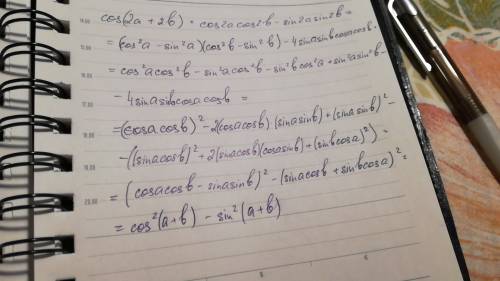 cos(2a + 2b) = cos2a cos2b - sin2a sin2b =
= (cos²a - sin²a)(cos²b - sin²b) - 4sinasinbcosacosb =
= cos²acos²b - sin²acos²b - sin²bcos²a + sin²asin²b -
- 4sinasinbcosacosb =
= (cosacosb)² - 2(cosacosb)(sinasinb) + (sinasinb)² -
- ((sinacosb)² + 2(sinacosb)(cosasinb) + (sinbcosa)²) =
= (cosacosb - sinasinb)² - (sinacosb + sinbcosa)² =
= cos²(a+b) - sin²(a+b)